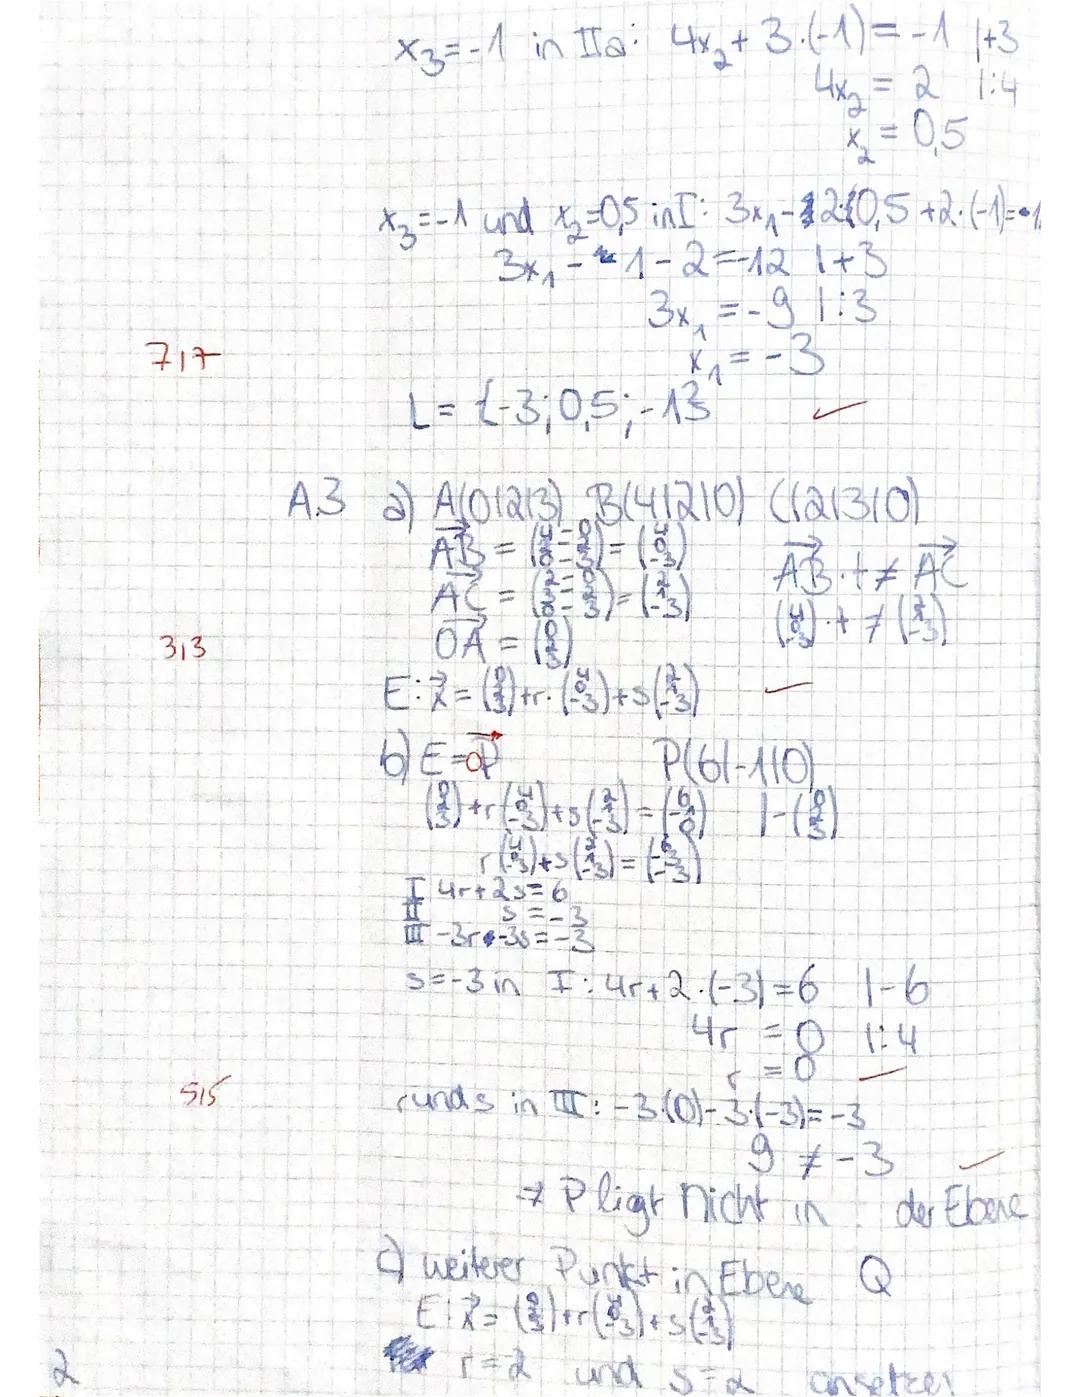 x₃=-1 in IIa: 4x₂ + 3·(-1) = -1 |+3
4x₂ = 2 |:4
x₂ = 0,5
x₃=-1 und x₂=0,5 in I: 3x₁ - 2·0,5 + 2·(-1) = -1
3x₁ - 1 - 2 = -12 |+3
3x₁ = -9 |:3
7/7
x₁ = -3
L = {-3; 0,5; -1}
A3 a) A(0|2|3) B(4|2|0) C(2|3|0)
AB = (4-0 2-2 0-3) = (4 0 -3)
AC = (2-0 3-2 0-3) = (2 1 -3)
AB · t ≠ AC
(4 0 -3) · t ≠ (2 1 -3)
OA = (0 2 3)
3/3
E: x = (0 2 3) + r · (4 0 -3) + s (2 1 -3)
b) E = OP P(6|-1|0)
(0 2 3) + r (4 0 -3) + s (2 1 -3) = (6 -1 0) |-(0 2 3)
r (4 0 -3) + s (2 1 -3) = (6 -3 -3)
I 4r + 2s = 6
II s = -3
III -3r -3s = -3
s = -3 in I: 4r + 2·(-3) = 6 |-6
4r = 0 |:4
r = 0
5/5
r und s in III: -3·(0) - 3·(-3) = -3
9 ≠ -3
→ P ligt nicht in der Ebene
c) weiterer Punkt in Ebene Q
E: x = (0 2 3) + r (4 0 -3) + s (2 1 -3)
r = 2 und s = 2 ansetzen
2